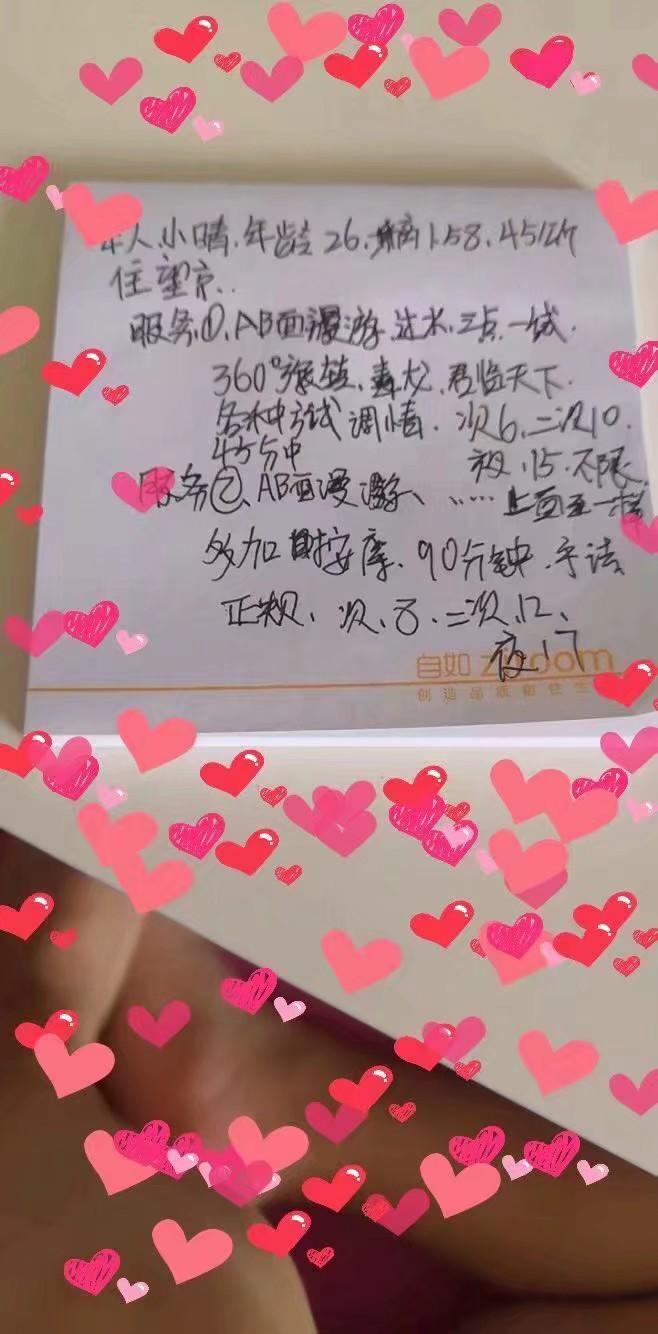 本人、小晴、年龄26、身高1.58、45公斤
住望京..
服务①、AB面漫游、过水、三点一线.
360°、毒龙、君临天下.
各种方式调情. 次6、二次10.
45分中
夜、15、不限
服务②、AB面漫游、……上面一样
多加按摩、90分钟、手法
正规、次、8、二次、12、
夜、17
自如 ziroom
创造品质居住生